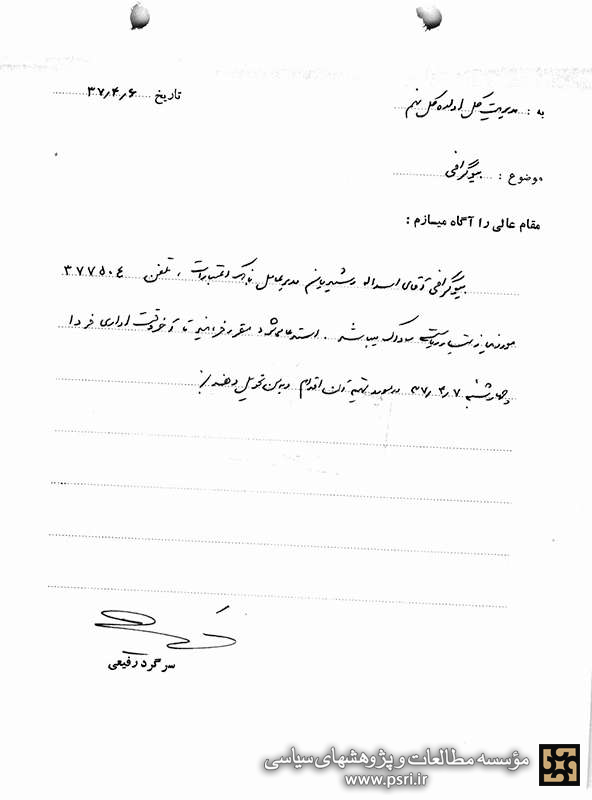 تاریخ ۳۷/۴/۶
به : مدیریت کل اداره کل نهم
موضوع : بیوگرافی
مقام عالی را آگاه میسازم :
بیوگرافی آقای اسداله رشیدیان مدیرعامل بانک اعتبارات ، تلفن ۳۷۷۵۰۴
مورد نیاز ریاست ساواک میباشد . استدعا میشود مقرر فرمائید تا آخر وقت اداری فردا
چهارشنبه ۳۷/۴/۷ تهیه آن اقدام تحویل دهند
سرگرد رفیعی
مؤسسه مطالعات و پژوهشهای سیاسی
www.psri.ir